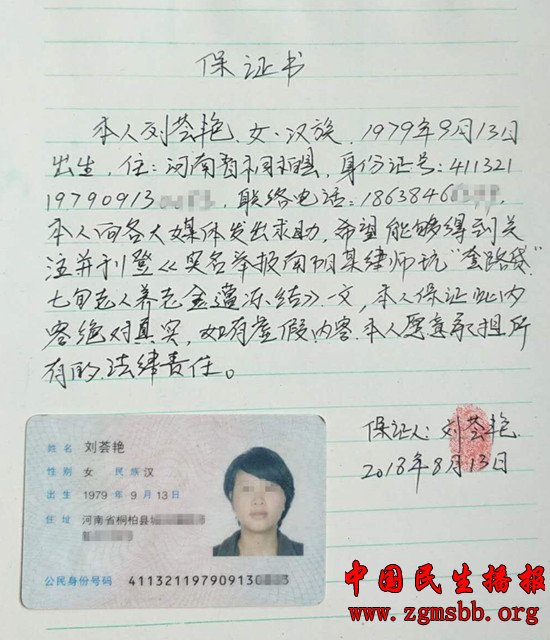 保证书
本人刘荟艳、女、汉族、1979年9月13日
出生，住：河南省桐柏县，身份证号：411321
19790913，联络电话：1863846
本人向各大媒体发出求助，希望能够得到关
注并刊登《实名举报南阳某律师坑"套路贷"
七旬老人养老金遭冻结》一文，本人保证此内
容绝对真实，如有虚假内容、本人愿意承担所
有的法律责任。
保证人：刘荟艳
2018年8月13日
姓名 刘荟艳
性别 女 民族 汉
出生 1979 年 9 月 13 日
住址 河南省桐柏县
公民身份号码 41132119790913
中国民生播报
www.zgmsbb.org